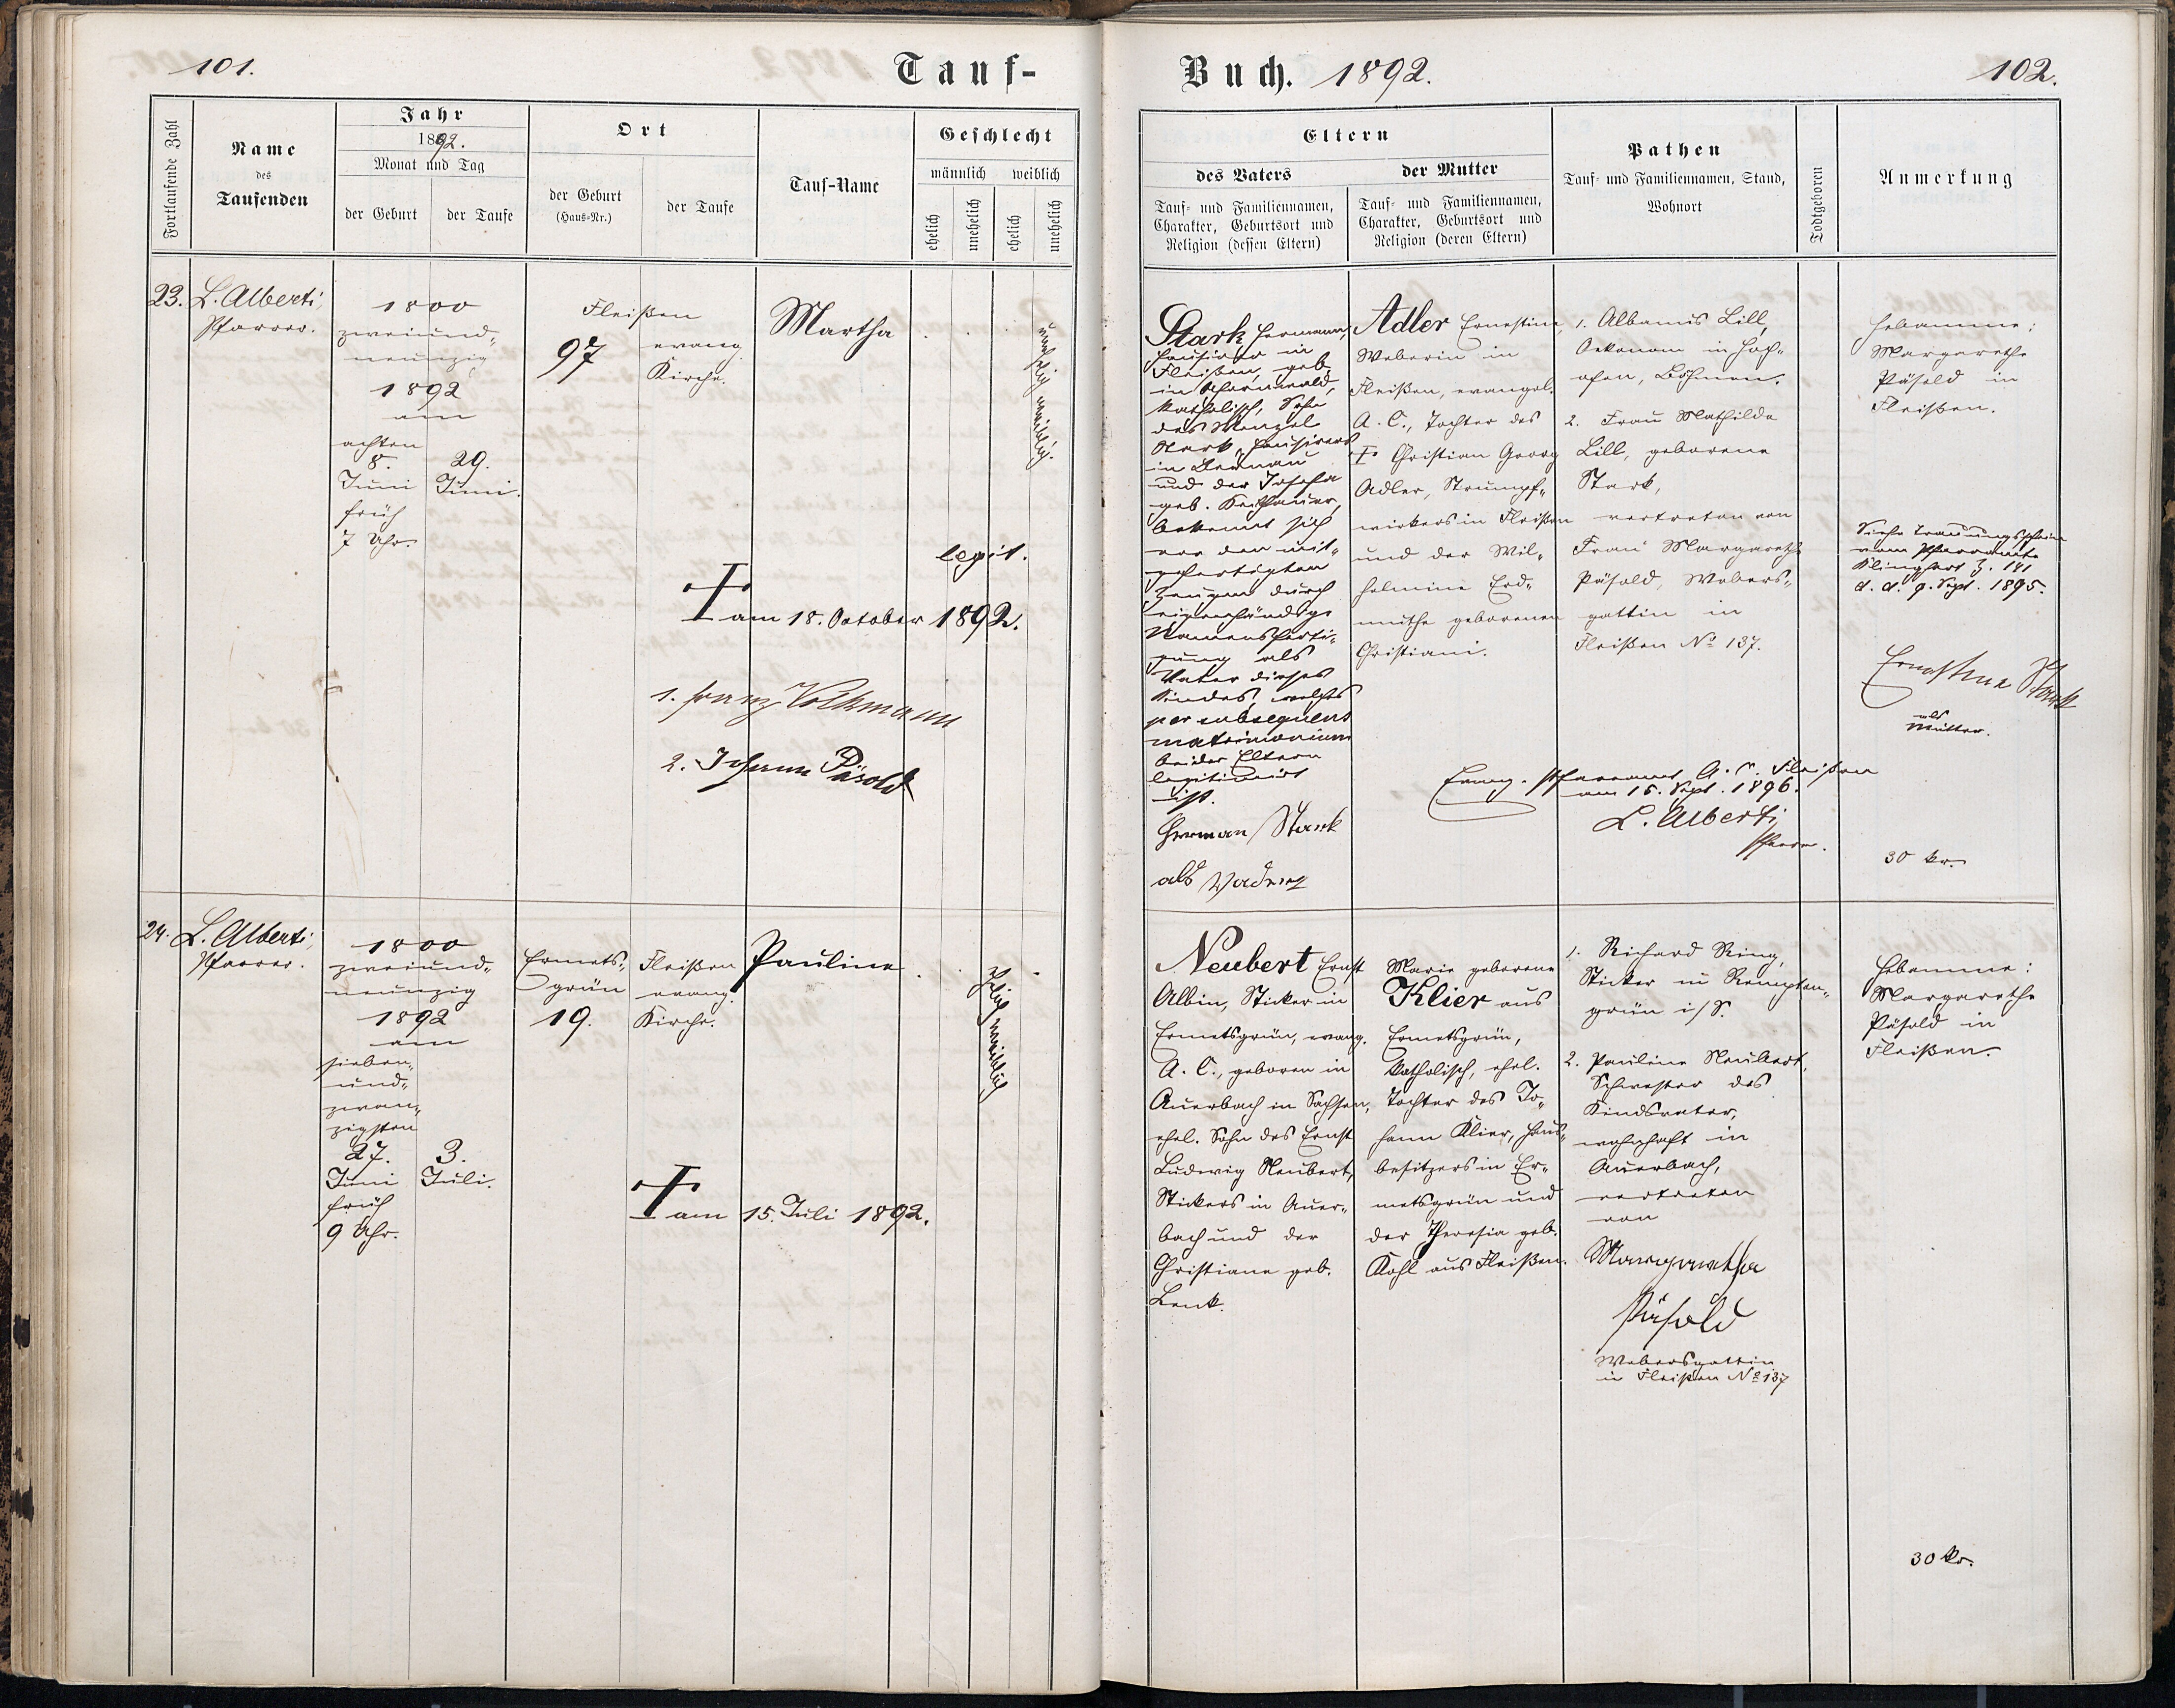 101.
Tauf-
Buch. 1892.
102.
Fortlaufende Zahl
Name
des
Taufenden
Jahr
1892.
Monat und Tag
der Geburt
der Taufe
Ort
der Geburt
(Haus-Nr.)
der Taufe
Tauf-Name
Geschlecht
männlich
weiblich
ehelich
unehelich
ehelich
unehelich
Eltern
des Vaters
Tauf- und Familiennamen,
Charakter, Geburtsort und
Religion (dessen Eltern)
der Mutter
Tauf- und Familiennamen,
Charakter, Geburtsort und
Religion (deren Eltern)
Pathen
Tauf- und Familiennamen, Stand,
Wohnort
Todtgeboren
Anmerkung
23.
L. Alberti,
Pfarrer.
1800
zweiund-
neunzig
1892
am
achten
8.
Juni
früh
7 Uhr.
29.
Juni.
Fleißen
97
evang.
Kirche.
Martha
unehelich weiblich.
legit.
am 18. October 1892.
1. Franz Volkmann
2. Johann Päsold
Stark Hermann,
Hausirer in
Fleißen, geb.
in
katholisch, Sohn
des Wenzel
Stark, Hausirers
in
und der Josefa
geb.
bekennt sich
vor den mit-
gefertigten
Zeugen durch
eigenhändige
Namensferti-
gung als
Vater dieses
Kindes, welches
per subsequens
matrimonium
beider Eltern
legitimirt
ist.
Herman Stark
als Vader
Adler Ernestine,
Weberin in
Fleißen, evangel.
A. C., Tochter des
† Christian Georg
Adler, Strumpf-
wirkers in Fleißen
und der Wil-
helmine Erd-
muthe geborenen
Christiani.
1. Albanus Lill,
Oekonom in
ofen, Böhmen.
2. Frau Mathilde
Lill, geborene
Stark,
vertreten von
Frau Margareth
Päsold, Webers-
gattin in
Fleißen No 137.
Hebamme:
Margarethe
Päsold in
Fleißen.
Siehe Trauungsschein
vom Pfarramte
Klinghart Z. 141
d. d. 9. Sept. 1895.
Ernestine Stark
als
Mutter.
Evang. Pfarramt A. C. Fleißen
am 15. Sept. 1896.
L. Alberti,
Pfarr.
30 kr.
24.
L. Alberti,
Pfarrer.
1800
zweiund-
neunzig
1892
am
sieben-
und-
zwan-
zigsten
27.
Juni
früh
9 Uhr.
3.
Juli.
Ermets-
grün
19.
Fleißen
evang.
Kirche.
Pauline
ehelich weiblich
am 15. Juli 1892.
Neubert Ernst
Albin, Sticker in
Ermetsgrün, evang.
A. C., geboren in
Auerbach in Sachsen,
ehel. Sohn des Ernst
Ludwig Neubert,
Stickers in Auer-
bach und der
Christiane geb.
Lenk.
Marie geborene
Klier aus
Ermetsgrün,
katholisch, ehel.
Tochter des Jo-
hann Klier, Haus-
besitzers in Er-
metsgrün und
der Theresia geb.
Kohl aus Fleißen.
1. Richard Ring,
Sticker in Rempten-
grün i/S.
2. Pauline Neubert,
Schwester des
Kindsvater,
wohnhaft in
Auerbach,
vertreten
von
Margaretha
Päsold
Webersgattin
in Fleißen No 137
Hebamme:
Margarethe
Päsold in
Fleißen.
30 kr.